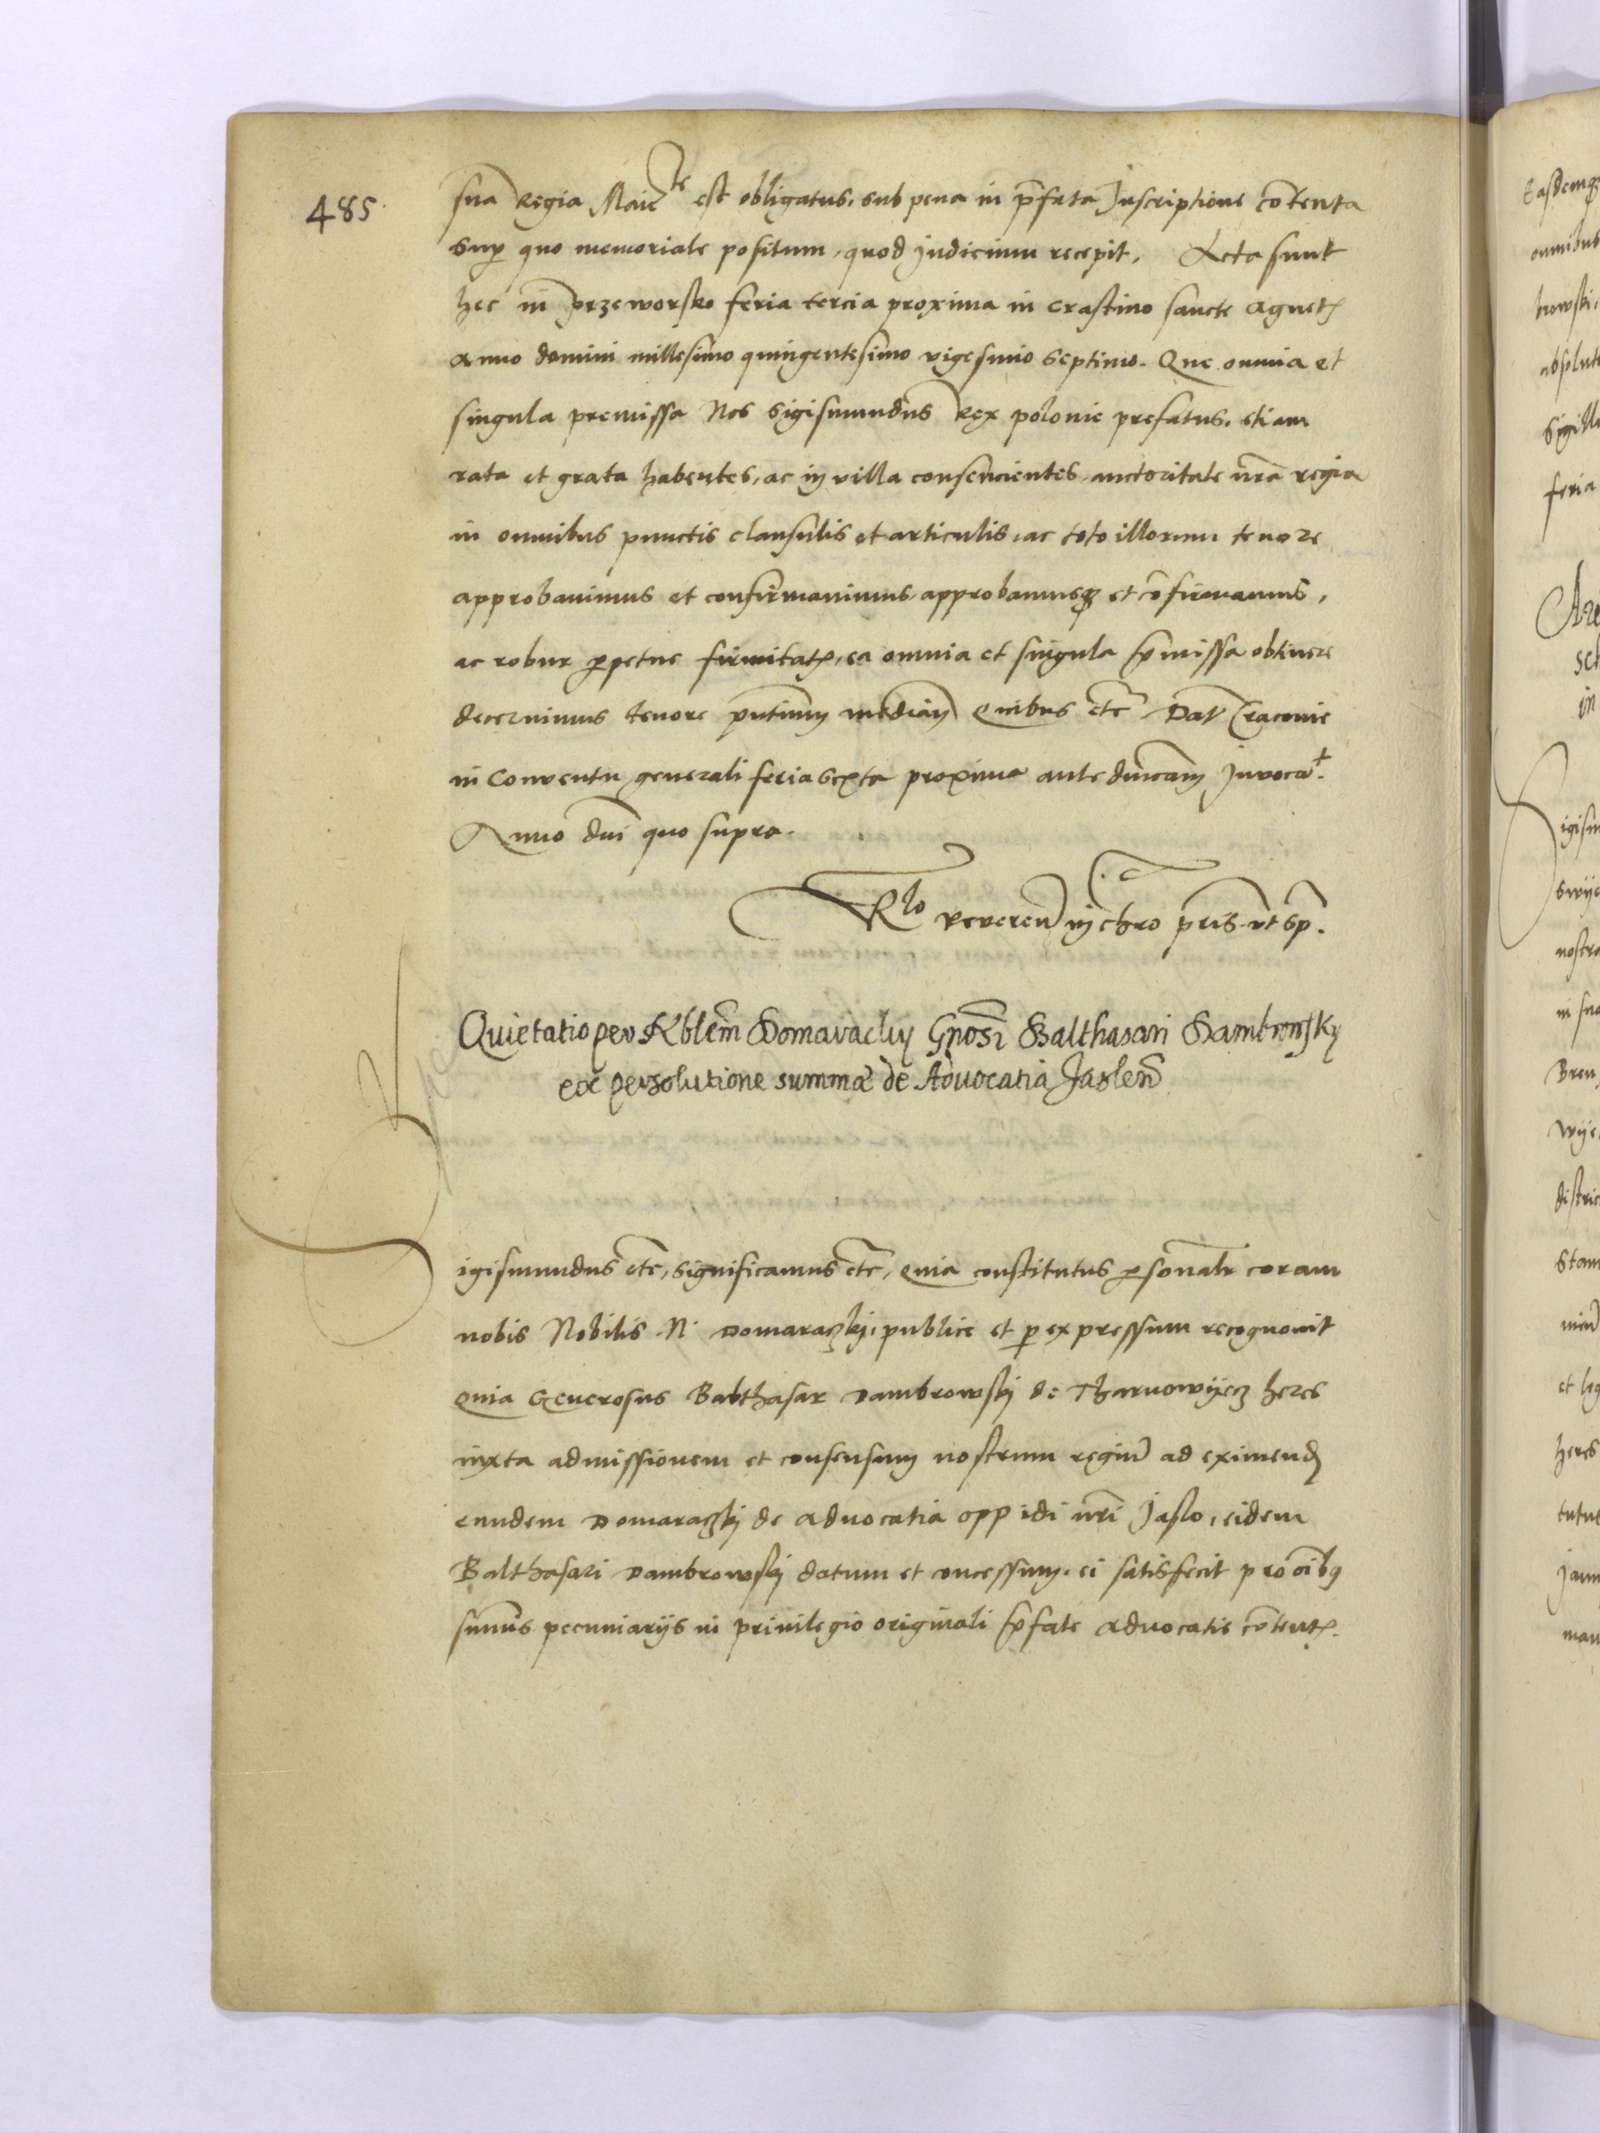 485
sua Regia Maiete est obligatus, sub pena in prefata Inscriptione contenta
Super quo memoriale positum, quod Judicium recepit. Acta sunt
hec in przeworsko feria tercia proxima in crastino sancte Agnetis
Anno domini millesimo quingentesimo vigesimo septimo. Que omnia et
singula premissa Nos Sigismundus Rex polonie prefatus, etiam
rata et grata habentes, ac in villa consencientes, auctoritate nra regia
in omnibus punctis clausulis et articulis, ac toto illorum tenore
approbavimus et confirmavimus approbamusq et cofirmamus,
ac robur perpetue firmitatis, ea omnia et singula premissa obtinere
decernimus tenore pntium mediam Quibus etc Dat Cracovie
in Conventu generali feria sexta proxima ante dnicam Invocat.
Anno dni quo supra.
Rlo Reveren in Chro pris ut sp.
Quietatio per Nblem Domaradzky Gnosi Balthasari Dambrowsky
ex persolutione summae de Advocatia Jaslen
Sigismundus etc, significamus etc, Quia constitutus personalr coram
nobis Nobilis N. Domaraczkj, publice et per expressum recognovit
Quia Generosus Balthasar Dambrowskj de Tharnowyecz heres
iuxta admissionem et consensum nostrum regium ad eximend
eundem Domaraczkj de advocatia oppidi nri Jaslo, eidem
Balthasari Dambrowskj datum et concessum, ei satisfecit pro oibus
summis pecuniarijs in privilegio originali prefate advocatie contentis.